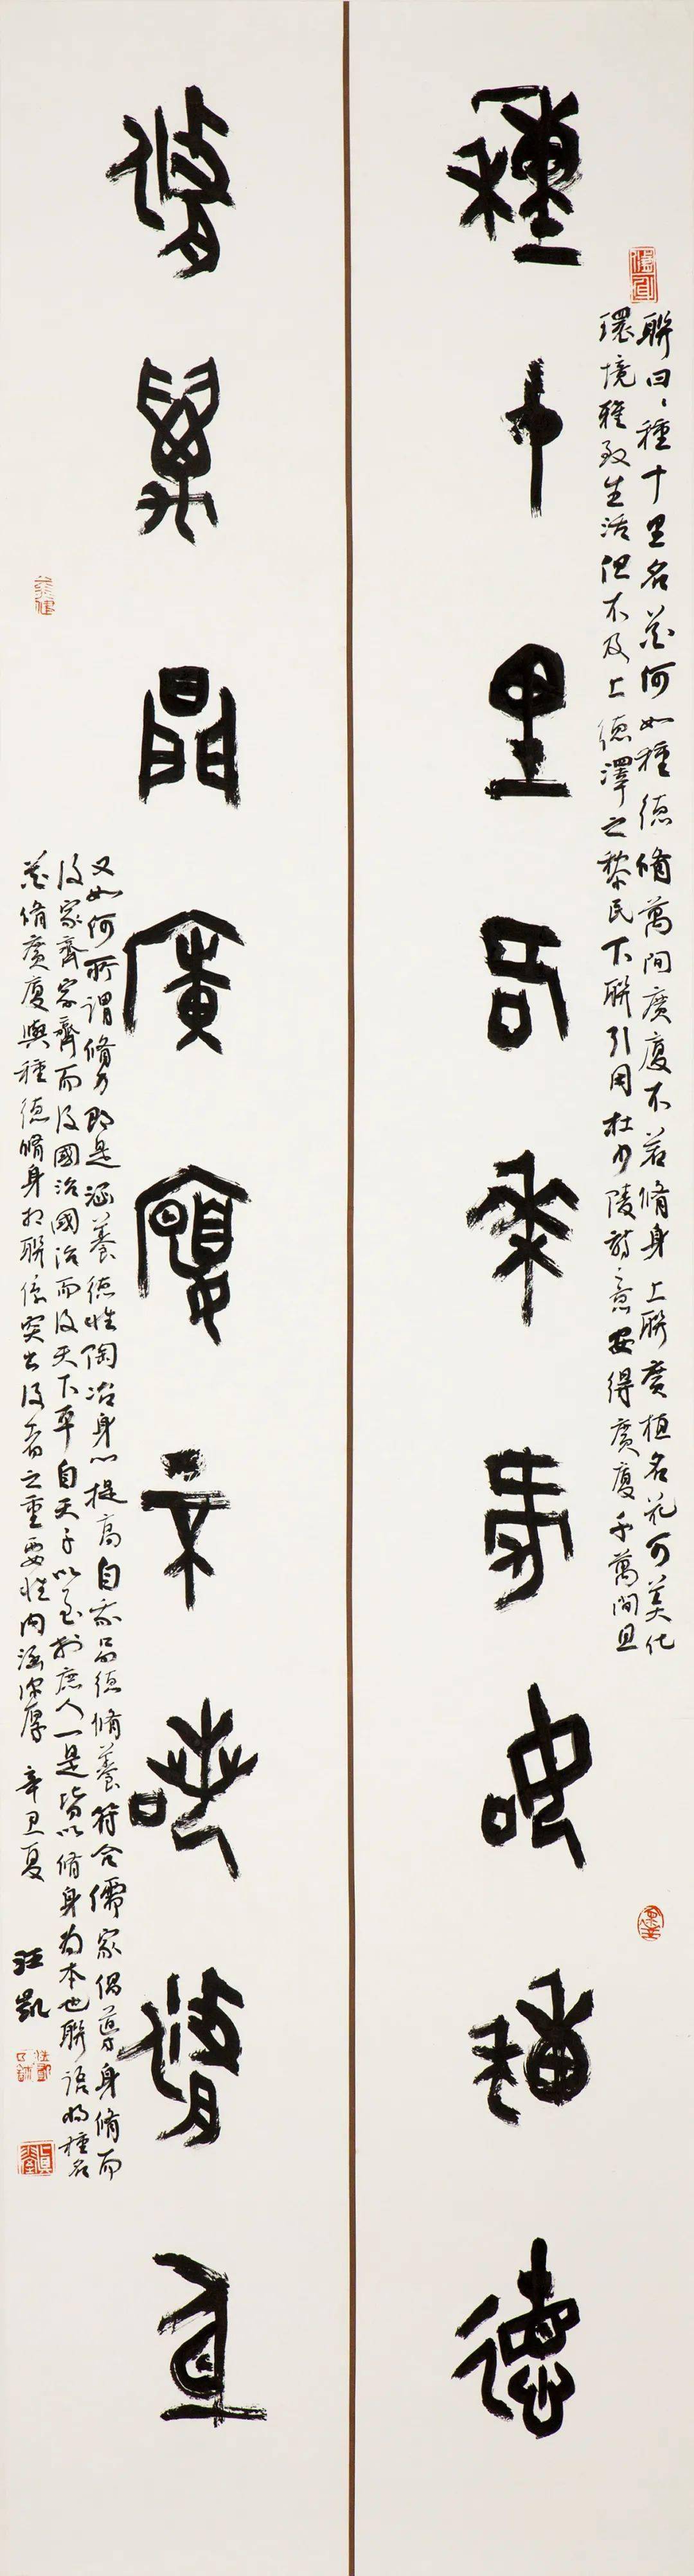 種十里名花何如種德
聯曰種十里名花何如種德脩萬間廣廈不若脩身上聯廣植名花可美化
環境雅致生活但不及上德澤之黎民下聯引用杜少陵詩意安得廣廈千萬間且
脩萬間廣廈不若脩身
又如何所謂脩身即是涵養德性陶冶身心提高自我品德脩養符合儒家倡導身脩而
後家齊家齊而後國治國治而後天下平自天子以至於庶人一是皆以脩身為本也聯語將種名
花脩廣廈與種德脩身相聯係突出後者之重要性內涵深厚 辛丑夏 汪凱